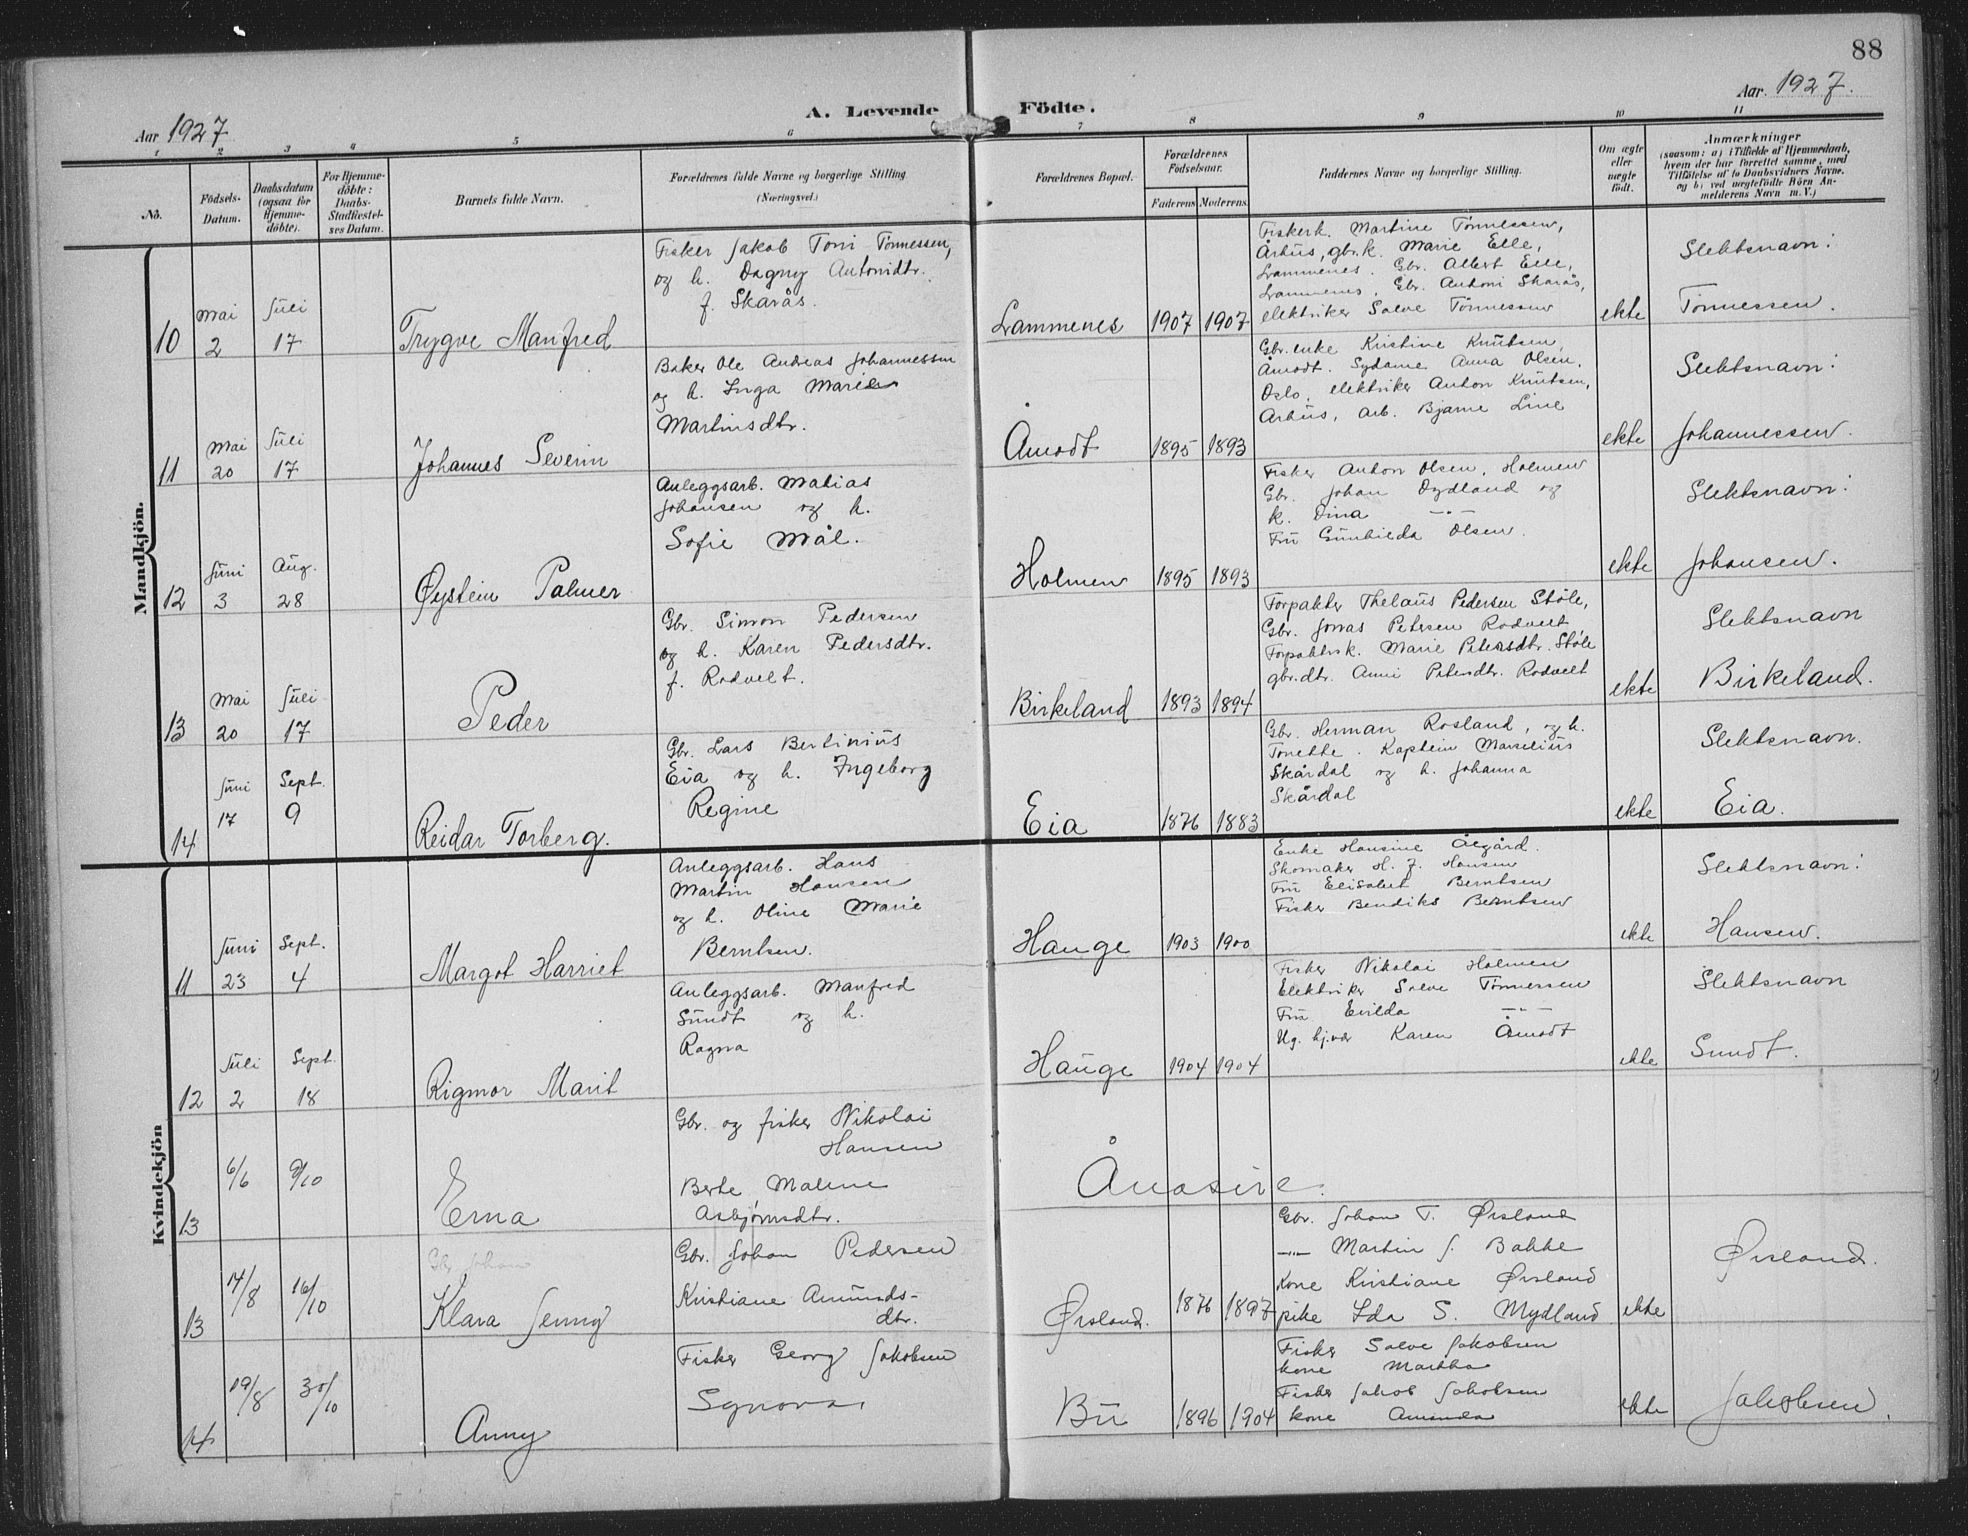 88
Aar 1927
A. Levende Födte.
Aar 1927.
1 2 3 4 5 6 7 8 9 10 11
No.
Födsels-
Datum.
Daabsdatum
(ogsaa for
Hjemme-
döbte).
For Hjemme-
döbte:
Daabs-
Stadfæstel-
ses Datum.
Barnets fulde Navn.
Forældrenes fulde Navne og borgerlige Stilling
(Næringsvei.)
Forældrenes Bopæl.
Forældrenes
Födselsaar.
Faderens Moderens
Faddernes Navne og borgerlige Stilling.
Om ægte
eller
uægte
födt.
Anmærkninger
(saasom: a) i Tilfælde af Hjemmedaab,
hvem der har forrettet samme, med
Tilföielse af to Daabsvidners Navne.
og b) ved uægtefödte Börn An-
melderens Navn m. V.)
Mandkjön.
10
Mai
2
Juli
17
Trygve Manfred
Fisker Jakob Toni Tønnessen,
og h. Dagny Antonidtr.
f. Skarås.
Lammenes
1907 1907
Fiskerk. Martine Tønnessen,
Århus, gbr.k. Marie Elle,
Lammenes. Gbr. Albert Elle,
Lammenes, Gbr. Antoni Skarås,
elektriker Salve Tønnessen
ekte
Slektsnavn:
Tønnessen.
11
Mai
20
Juli
17
Johannes Severin
Baker Ole Andreas Johannessen
og h. Inga Marie
Martinsdtr.
Åmodt
1895 1893
Gbr.enke Kristine Knutsen,
Åmodt. Sydame Anna Olsen,
Oslo, elektriker Anton Knutsen,
Århus, arb. Bjarne Line
ekte
Slektsnavn:
Johannessen.
12
Juni
3
Aug.
28
Øystein Palmer
Anleggsarb. Matias
Johansen og h.
Sofie Mål.
Holmen
1895 1893
Fisker Anton Olsen, Holmen
Gbr. Johan Dydland og
k. Dina —"—
Fru Gunhilda Olsen.
ekte
Slektsnavn:
Johansen.
13
Mai
20
Juli
17
Peder
Gbr. Simon Pedersen
og h. Karen Pedersdtr.
f. Rodvelt.
Birkeland
1893 1894
Forpakter Thelaus Pedersen Støle,
Gbr. Jonas Petersen Rodvelt
Forpaktersk. Marie Petersdtr. Støle
gbr.dtr. Anni Petersdtr. Rodvelt
ekte
Slektsnavn
Birkeland.
14
Juni
17
Sept.
9
Reidar Torberg.
Gbr. Lars Bertinius
Eia og h. Ingeborg
Regine
Eia
1876 1883
Gbr. Herman Rosland, og h.
Tonette. Kaptein Marselius
Skårdal og h. Johanna
Skårdal
ekte
Slektsnavn.
Eia.
Kvindekjön
11
Juni
23
Sept.
4
Margot Harriet
Anleggsarb. Hans
Martin Hansen
og h. Oline Marie
Berntsen.
Hauge
1903 1900
Enke Hansine Ålgård.
Skomaker H. J. Hansen
Fru Elisabet Berntsen
Fisker Bendiks Berntsen
ekte
Slektsnavn:
Hansen.
12
Juli
2
Sept.
18
Rigmor Marit
Anleggsarb. Manfred
Sundt og h.
Ragna
Hauge
1904 1904
Fisker Nikolai Holmen
Elektriker Salve Tønnessen
Fru Evilda —"—
Ug. hj.vær Karen Åmodt
ekte
Slektsnavn
Sundt.
13
6/6
9/10
Erna
Gbr. og fisker Nikolai
Hansen
Berte Malene
Asbjørnsdtr.
Ånasire.
13
14/8
16/10
Gbr Johan
Klara Jenny
Gbr. Johan Pedersen
Kristiane Amunds-
dtr.
Ørsland.
1876 1897
Gbr. Johan T. Ørsland
—"— Martin J. Bakke
Kone Kristiane Ørsland
pike Ida S. Mydland
ekte
Ørsland.
14
19/8
30/10
Anny
Fisker Georg Jakobsen
Synova.
Bu
1896 1904
Fisker Salve Jakobsen
kone Martha
Fisker Jakob Jakobsen
kone Amanda
ekte
Jakobsen.